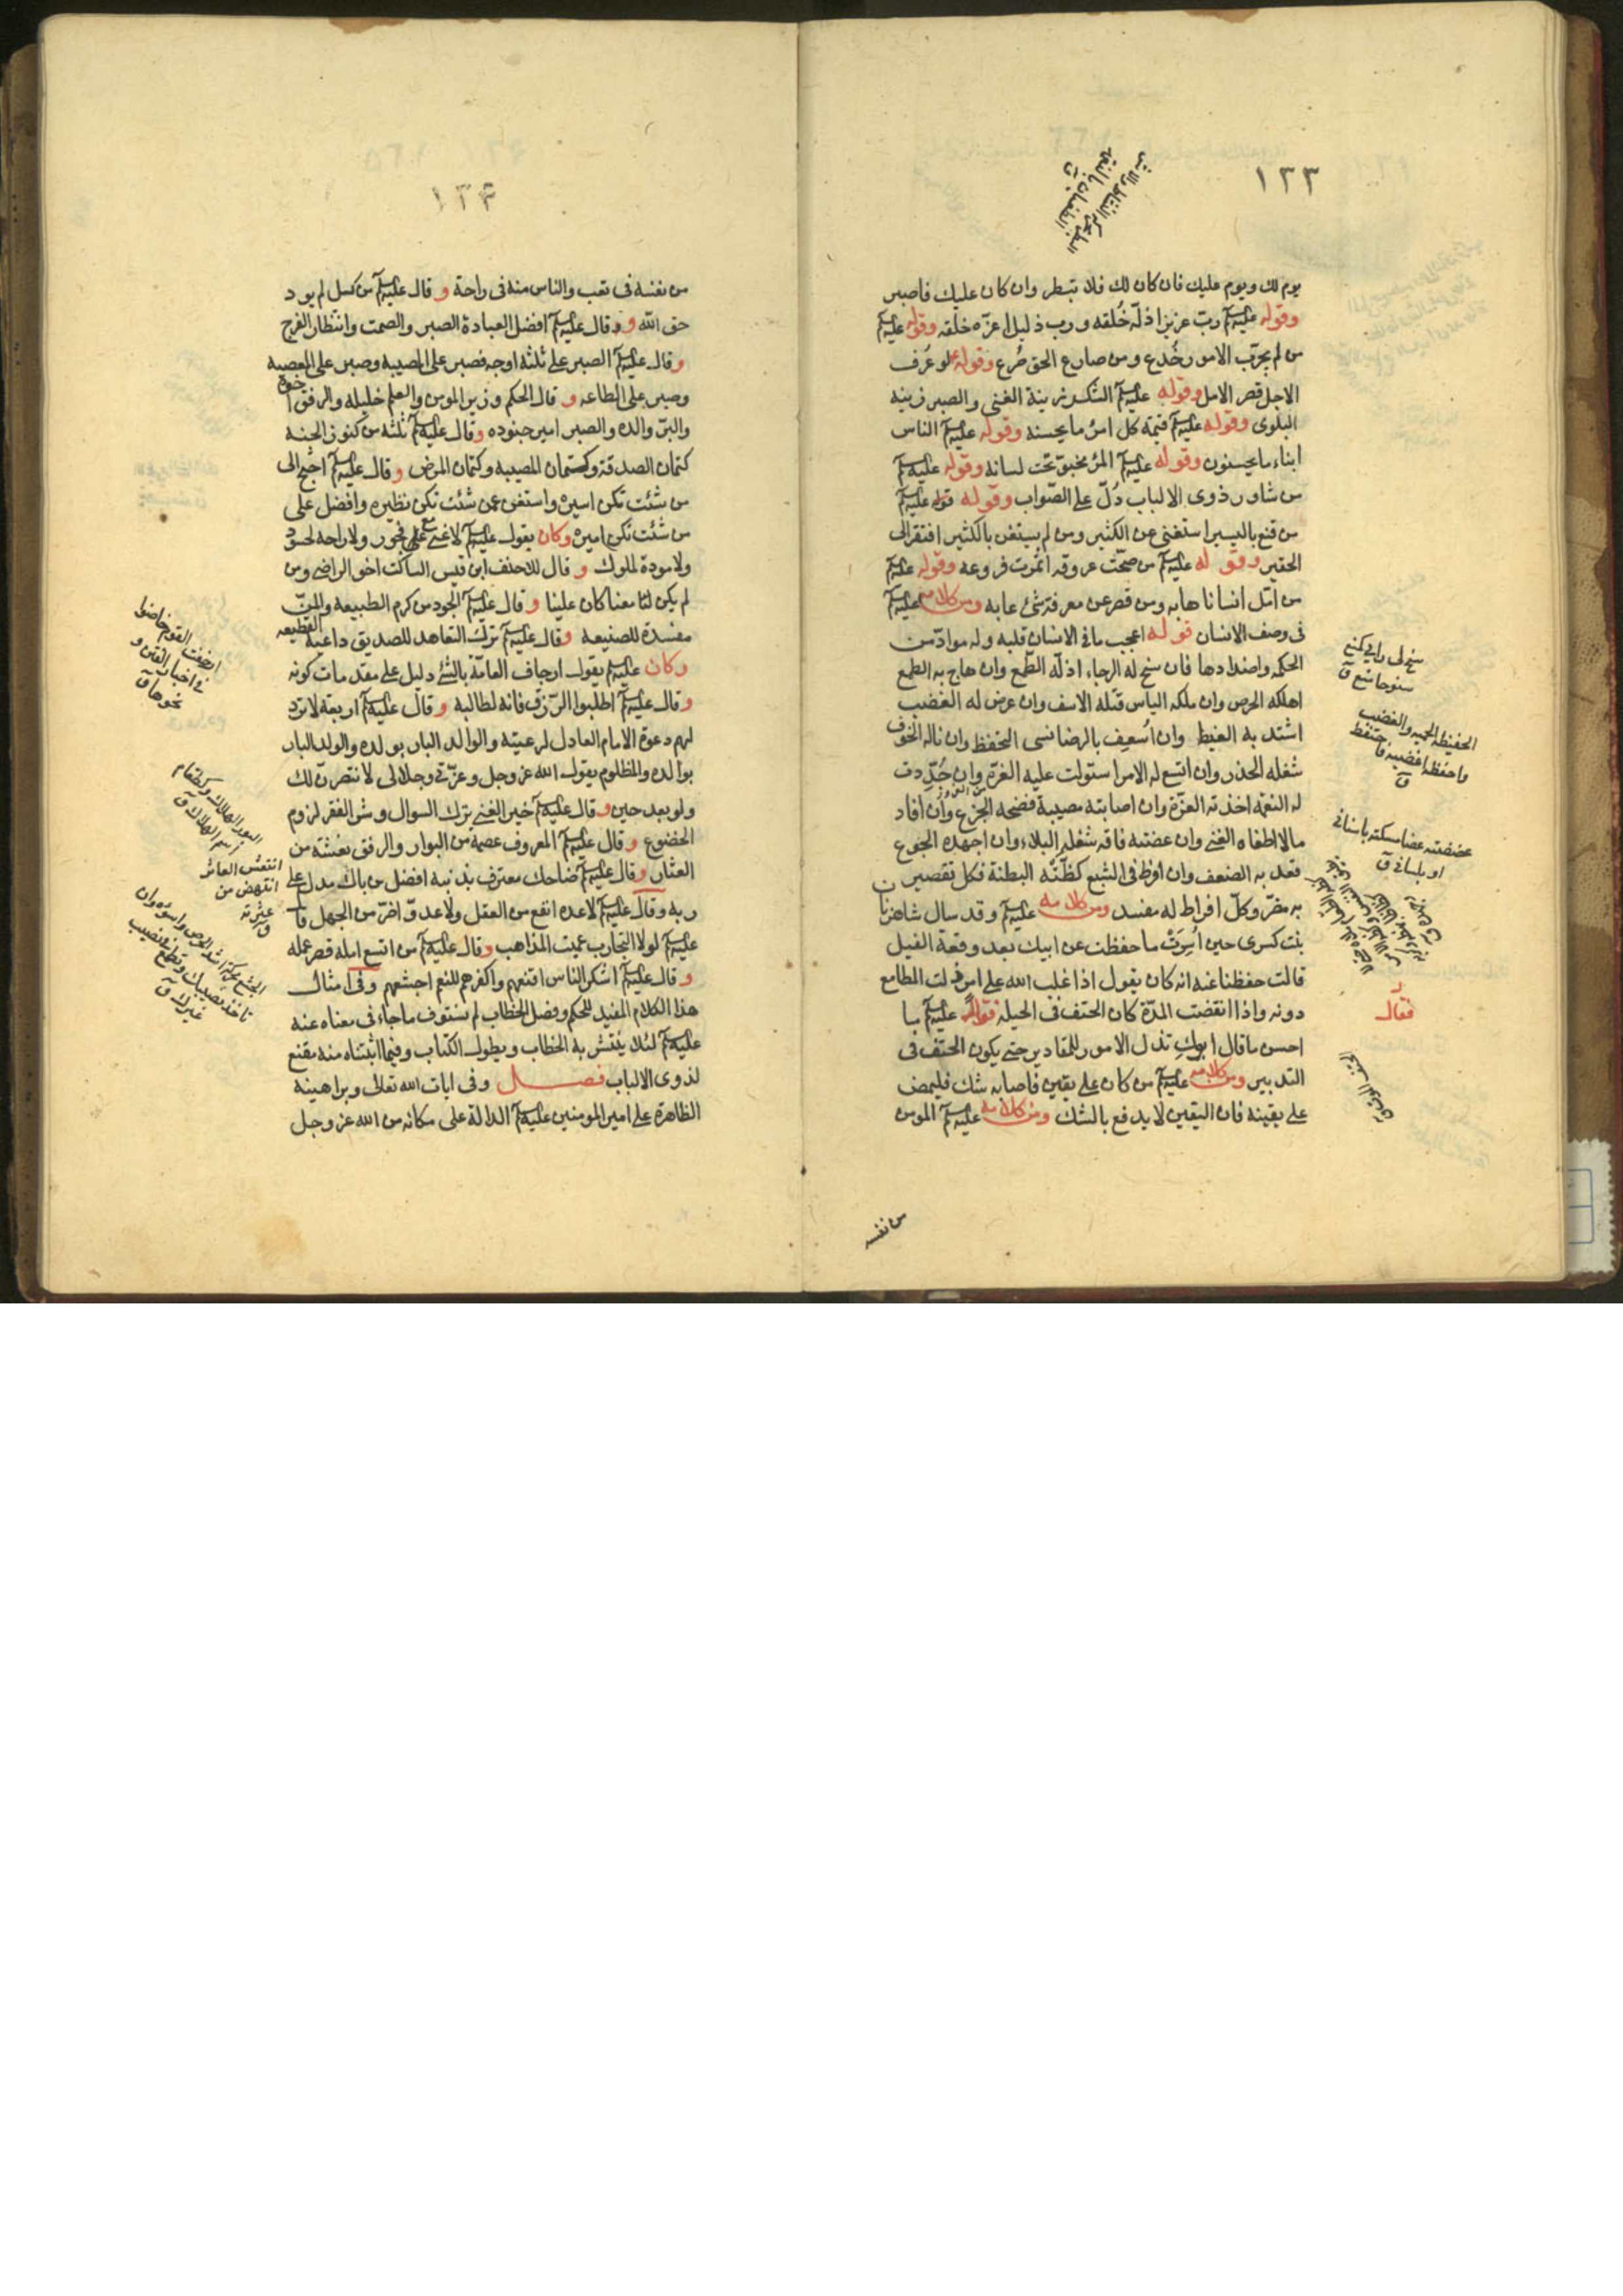 ١٢٣
يوم لك ويوم عليك فان كان لك فلا تبطر وان كان عليك فاصبر
وقوله عليه السلم ربّ عزيز اذلّه خُلقه ورب ذليل اعزّه خلقه وقوله عليه السلم
من لم يجرّب الامور خُدع ومن صارع الحق صُرع وقوله لو عُرف
الاجل قصر الامل وقوله عليه السلم الشكر زينة الغنى والصبر زينة
البلوى وقوله عليه السلم قيمة كل امرئ ما يحسنه وقوله عليه السلم الناس
ابناء ما يحسنون وقوله عليه السلم المرء مخبوّ تحت لسانه وقوله عليه السلم
من شاور ذوى الالباب دُلّ على الصّواب وقوله عليه السلم
من قنع باليسير استغنى عن الكثير ومن لم يستغن بالكثير افتقر الى
الحقير وقوله عليه السلم من صحّت عروقه اثمرت فروعه وقوله عليه السلم
من امّل انسانا هابه ومن قصر عن معرفة شئ عابه ومن كلامه عليه السلم
فى وصف الانسان قوله اعجب ما فى الانسان قلبه وله موادّ من
الحكمه واضداد لها فان سنح له الرجاء اذلّه الطّمع وان هاج به الطمع
اهلكه الحرص وان ملكه الياس قتله الاسف وان عرض له الغضب
اشتد به الغيظ وان اُسعِف بالرضا نسى التحفظ وان ناله الخوف
شغله الحذر وان اتسع له الامر استولت عليه الغرّة وان جُدّدت
له النعمة اخذته العزّة وان اصابته مصيبة فضحه الجزع وان افاد
مالا اطغاه الغنى وان عضته فاقه شغله البلاء وان اجهده الجوع
قعد به الضعف وان افرط فى الشبع كظّتْه البطنة فكل تقصير
به مضرّ وكلّ افراط له مفسد ومن كلامه عليه السلم وقد سال شاه زنان
بنت كسرى حين اُسِرَتْ ما حفظت عن ابيك بعد وقعة الفيل
قالت حفظنا عنه انه كان يقول اذا غلب الله على امر ذلت المطامع
دونه واذا انقضت المدّة كان الحتف فى الحيلة فقال عليه السلم ما
احسن ما قال ابوكِ تذل الامور للمقادير حتى يكون الحتف فى
التدبير ومن كلامه عليه السلم من كان على يقين فاصابه شك فليمض
على يقينه فان اليقين لا يدفع بالشك ومن كلامه عليه السلم المومن
من نفسه
سنح لى راى كمنع
سنوحا
الحفيظة الحمية والغضب
واحفظه اغضبه فاحتفظ
ق
عضضته عضا مسكته باسنانى
او بلسانى ق
فقال
١٢٤
من نفسه فى تعب والناس منه فى راحة وقال عليه السلم من كسل لم يود
حق الله وقال عليه السلم افضل العبادة الصبر والصمت وانتظار الفرج
وقال عليه السلم الصبر على ثلثة اوجه فصبر على المصيبه وصبر على المعصيه
وصبر على الطاعه وقال الحكم وزير المومن والعلم خليله والرفق اخوه
والبرّ والده والصبر امير جنوده وقال عليه السلم ثلثة من كنوز الجنه
كتمان الصدقة وكتمان المصيبه وكتمان المرض وقال عليه السلم احتج الى
من شئت تكن اسيره واستغن عمن شئت تكن نظيره وافضل على
من شئت تكن اميره وكان يقول عليه السلم لا غنى مع فجور ولا راحه لحسود
ولا مودة لملوك وقال للاحنف ابن قيس الساكت اخو الراضى ومن
لم يكن لنا معنا كان علينا وقال عليه السلم الجود من كرم الطبيعه والمنّ
مفسدة للصنيعه وقال عليه السلم ترك التعاهد للصديق داعية القطيعه
وكان عليه السلم يقول ارجاف العامّة بالشئ دليل على مقدمات كونه
وقال عليه السلم اطلبوا الرّزق فانه لطالبه وقال عليه السلم اربعة لا تردّ
لهم دعوة الامام العادل لرعيته والوالد البار بولده والولد البار
بوالده والمظلوم يقول الله عز وجل وعزّتى وجلالى لانتصرنّ لك
ولو بعد حين وقال عليه السلم خير الغنى ترك السوال وشر الفقر لزوم
الخضوع وقال عليه السلم المعروف عصمه من البوار والرفق نعشة من
العثار وقال عليه السلم ضاحك معترف بذنبه افضل من باك مدل على
ربه وقال عليه السلم لا عده انفع من العقل ولا عدوّ اضرّ من الجهل وقال
عليه السلم لولا التجارب عميت المذاهب وقال عليه السلم من اتسع امله قصر عمله
وقال عليه السلم اشكر الناس اقنعهم واكفرهم للنعم اجشعهم وفى امثال
هذا الكلام المفيد للحكم وفصل الخطاب لم نستوف ما جاء فى معناه عنه
عليه السلم لئلا ينتشر به الخطاب ويطول الكتاب وفيما اثبتناه منه مقنع
لذوى الالباب فصل وفى ايات الله تعالى وبراهينه
الظاهرة على امير المومنين عليه السلم الدالة على مكانه من الله عز وجل
ارجفت القوم خاضوا
فى اخبار الفتن و
نحوها ق
انتعش العاثر
انتهض من
عثرته
ق